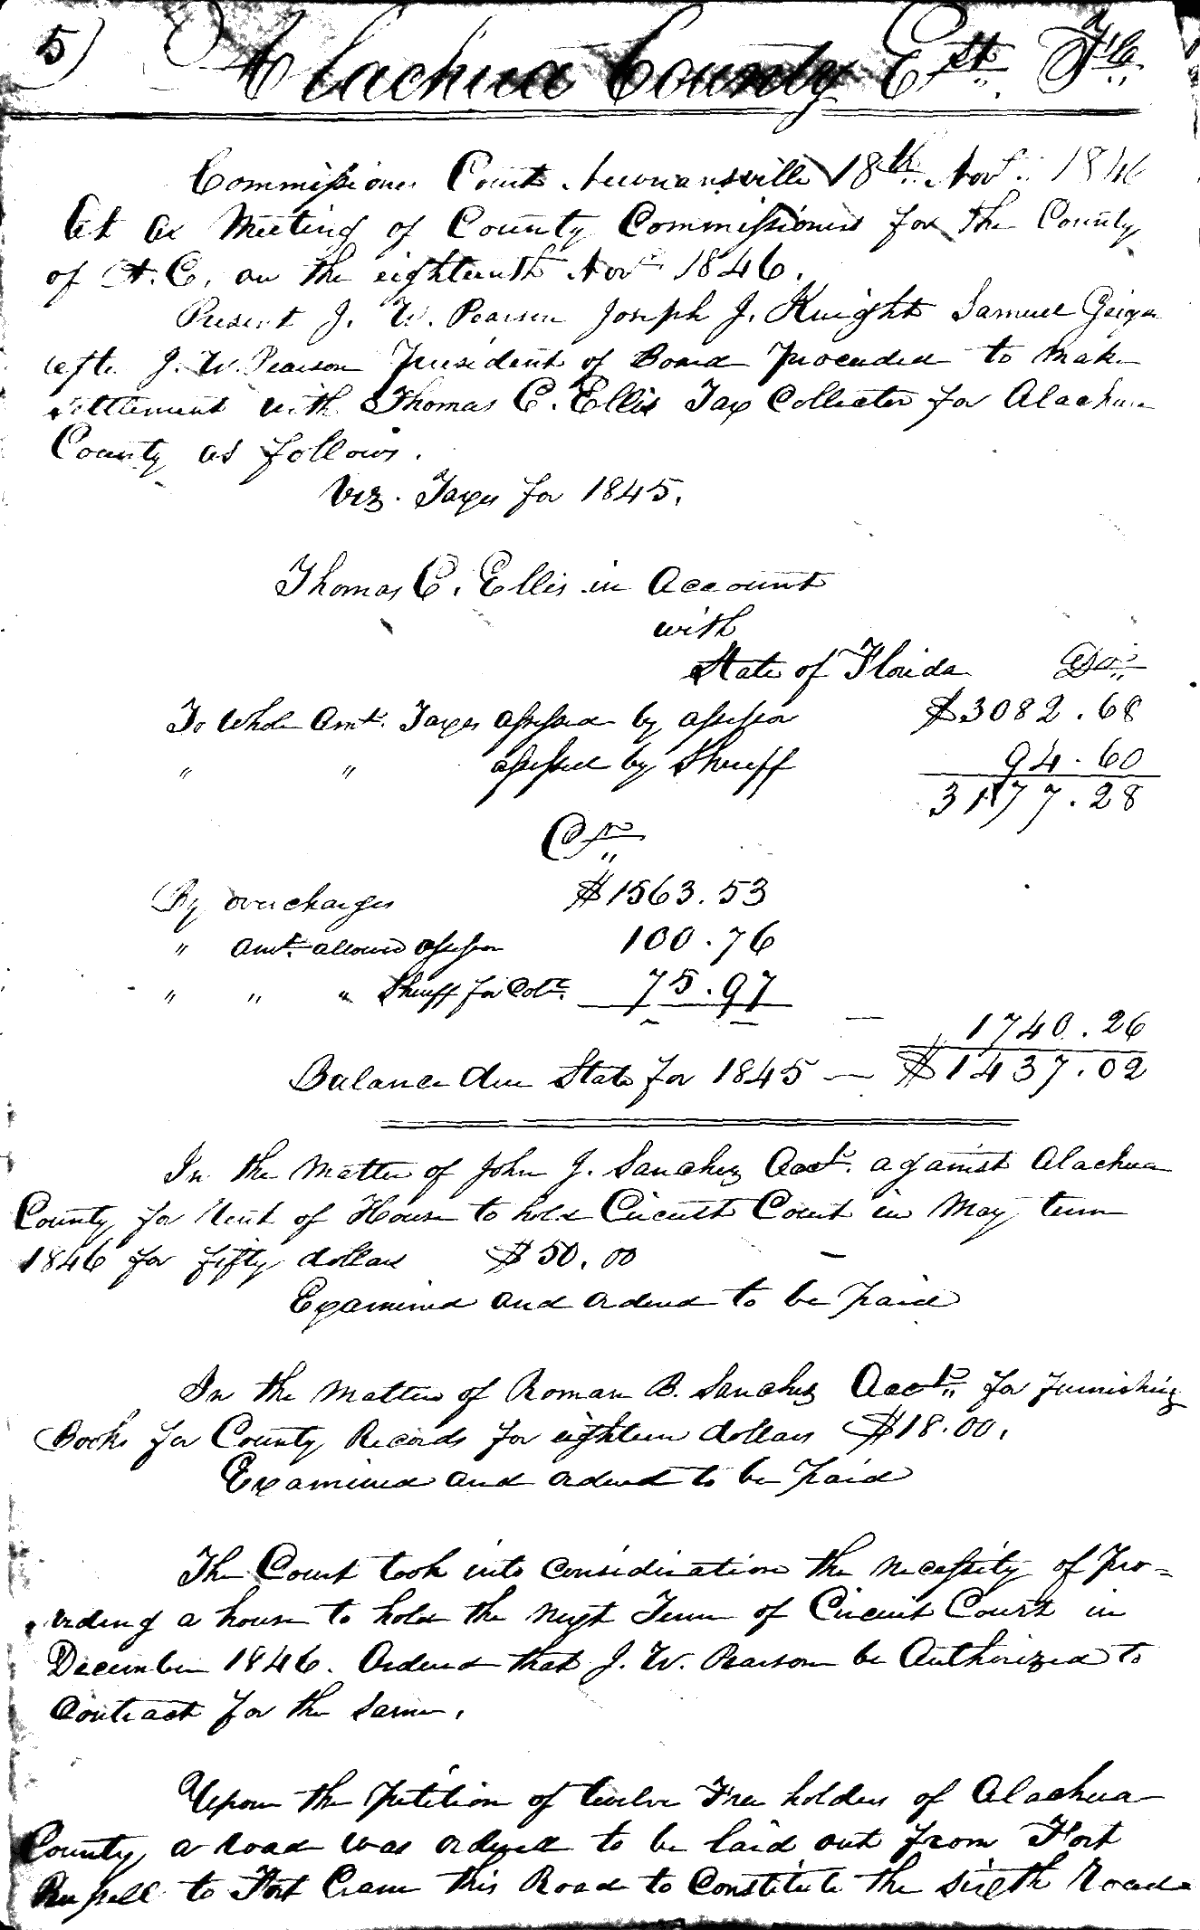 5) Alachua County Est. Fla.
Commissioner Court Newnansville 18th Novr. 1846
At a Meeting of County Commissioners for the County
of A. C. on the eighteenth Novr 1846.
Present J. W. Pearson Joseph J. Knight Samuel Geiger
after J. W. Pearson President of Board proceeded to make
settlement with Thomas C. Ellis Tax Collector for Alachua
County as follows.
Viz. Taxes for 1845.
Thomas C. Ellis in Account
with
State of Florida Dr.
To Whole Amt. Taxes assessed by assessor $3082.68
" " assessed by Sheriff 94.60
3177.28
Cr.
By overcharges $1563.53
" Amt. allowed assessor 100.76
" " " Sheriff for Colt. 75.97
1740.26
Balance due State for 1845 — $1437.02
In the Matter of John J. Sanchez Acct. against Alachua
County for Rent of House to hold Circuit Court in May term
1846 for fifty dollars $50.00
Examined and ordered to be paid
In the Matter of Roman B. Sanchez Acct. for furnishing
Books for County Records for eighteen dollars $18.00.
Examined and ordered to be paid
The Court took into consideration the necessity of pro=
viding a house to hold the next Term of Circuit Court in
December 1846. Ordered that J. W. Pearson be Authorized to
Contract for the same.
Upon the petition of twelve Free holders of Alachua
County a road was ordered to be laid out from Fort
Russell to Fort Crane this Road to Constitute the sixth Road